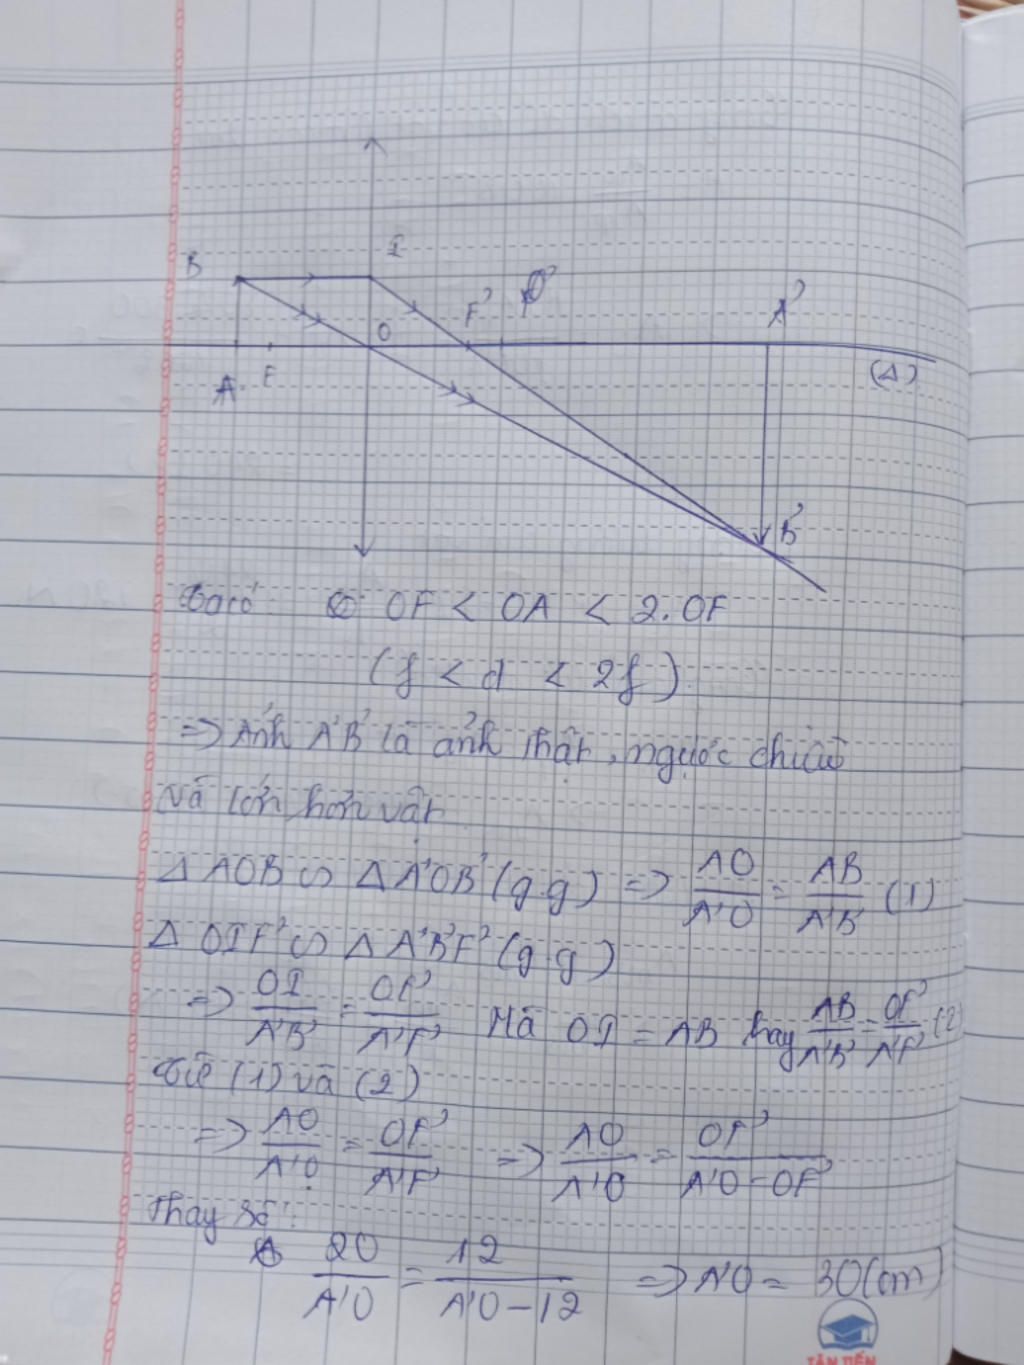 B
I
O
F'
A'
A
F
(Δ)
B'
Ta có: OF < OA < 2.OF
(f < d < 2f)
=> Ảnh A'B' là ảnh thật, ngược chiều
và lớn hơn vật
Δ AOB ∽ Δ A'OB' (g.g) => AO/A'O = AB/A'B' (1)
Δ OIF' ∽ Δ A'B'F' (g.g)
=> OI/A'B' = OF'/A'F' Mà OI = AB hay AB/A'B' = OF'/A'F' (2)
Từ (1) và (2)
=> AO/A'O = OF'/A'F' => AO/A'O = OF'/A'O - OF'
Thay số:
20/A'O = 12/A'O - 12 => A'O = 30(cm)
TÂN TIẾN